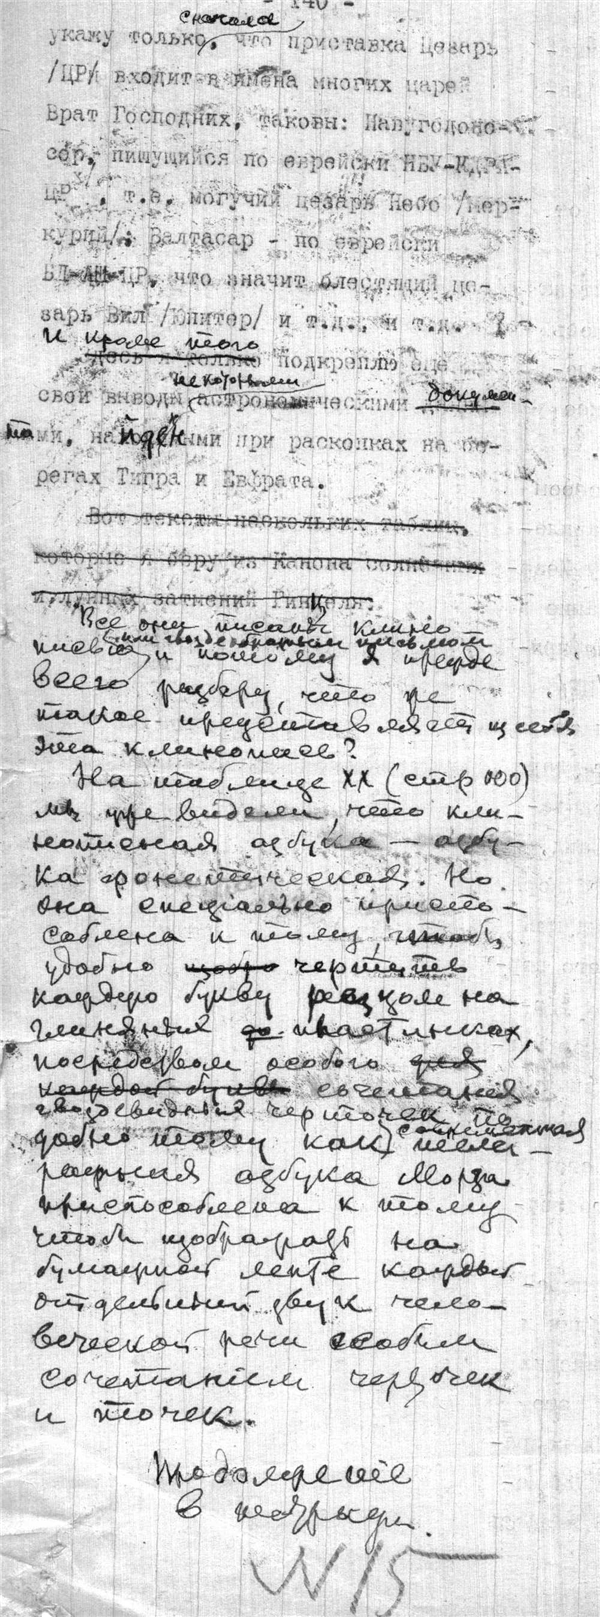 - 140 -
сначала
укажу только, что приставка Цезарь
/ЦР/ входит в имена многих царей
Врат Господних, таковы: Навуходоно-
сор, пишущийся по еврейски НБУ-КДРА-
ЦР, т.е. могучий цезарь Небо /Мер-
курий/; Валтасар - по еврейски
БЛ-АШ-ЦР, что значит блестящий це-
зарь Бил /Юпитер/ и т.д., и т.д.
и кроме того
Здесь я только подкреплю еще
некоторыми
свои выводы астрономическими докумен-
тами, найденными при раскопках на бе-
регах Тигра и Евфрата.
Вот тексты нескольких таблиц,
которые я беру из Канона солнечных
и лунных затмений Гинцеля.
Все они писаны клино
или гвоздеобразным письмом
писью и потому я прежде
всего разберу, что же
такое представляет из себя
эта клинопись?
На таблице XX (стр 000)
мы уже видели, что кли-
нописная азбука — азбу-
ка фонетическая. Но
она специально приспо-
соблена к тому, чтобы
удобно чертить
каждую букву резцом на
глиняных пластинках,
посредством особого для
каждой буквы сочетания
гвоздевидных черточек по
добно тому как современная
телег-
рафная азбука Морза
приспособлена к тому
чтоб изображать на
бумажной ленте каждый
отдельный звук чело-
веческой речи особым
сочетанием черточек
и точек.
Продолжение
в тетради
N 15